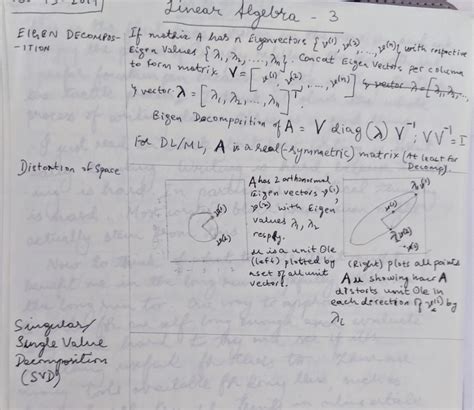 Linear Algebra - 3
EIGEN DECOMPOS-
-ITION
If matrix A has n Eigenvectors {v⁽¹⁾, v⁽²⁾, ..., v⁽ⁿ⁾} with respective
Eigen Values {λ₁, λ₂, ..., λₙ}. Concat Eigen Vectors per column
to form matrix V = [v⁽¹⁾, v⁽²⁾, ..., v⁽ⁿ⁾]
& vector λ = [λ₁, λ₂, ..., λₙ]ᵀ
Eigen Decomposition of A = V diag(λ) V⁻¹; VV⁻¹ = I
For DL/ML, A is a real(-symmetric) matrix (At least for
Decomp).
Distortion of Space
v⁽¹⁾
v⁽²⁾
A has 2 orthonormal
Eigen vectors v⁽¹⁾,
v⁽²⁾ with Eigen
values λ₁, λ₂
resply.
u is a unit Ole
(left) plotted by
a set of all unit
vectors.
λ₁v⁽¹⁾
v⁽¹⁾
v⁽²⁾
(Right) plots all points
Au showing how A
distorts unit Ole in
each direction of v⁽ⁱ⁾ by
λᵢ
Singular/
Single Value
Decomposition
(SVD)